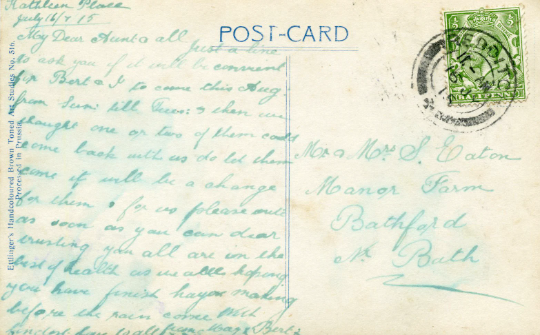 Kathleen Place
July 16/7 15
POST-CARD
My Dear Aunt & all Just a line
to ask you if it will be convenient
for Bert & I to come this Aug
from Sun: till Tues: & then we
thought one or two of them could
come back with us do let them
come it will be a change
for them & for us please write
as soon as you can dear
trusting you all are in the
best of health as us all hoping
you have finish haymaking
before the rain come With
fondest love to all from
Bert
Ettlinger's Handcoloured Brown Toned Art Studies No. 816.
Processed in Prussia.
REDDIT
Mr & Mrs S. Eaton
Manor Farm
Bathford
Nr Bath